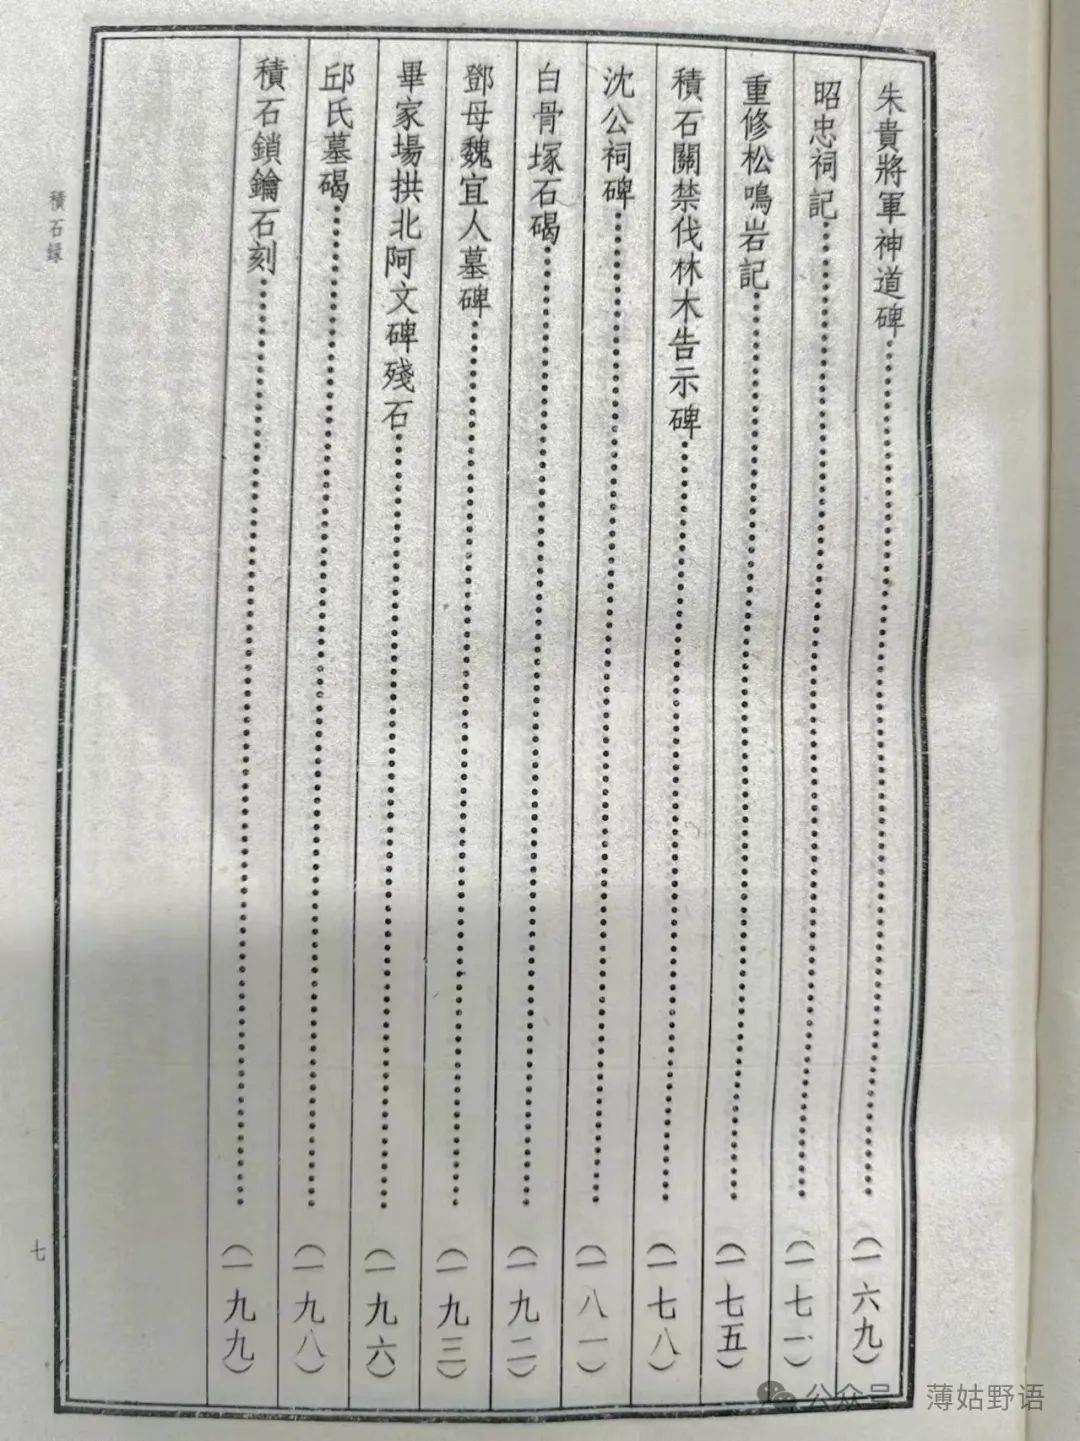 朱貴將軍神道碑……（一六九）
昭忠祠記……（一七一）
重修松鳴岩記……（一七五）
積石關禁伐林木告示碑……（一七八）
沈公祠碑……（一八一）
白骨塚石碣……（一九二）
鄧母魏宜人墓碑……（一九三）
畢家場拱北阿文碑殘石……（一九六）
邱氏墓碣……（一九八）
積石鎖鑰石刻……（一九九）
積石録
七
公众号 薄姑野语